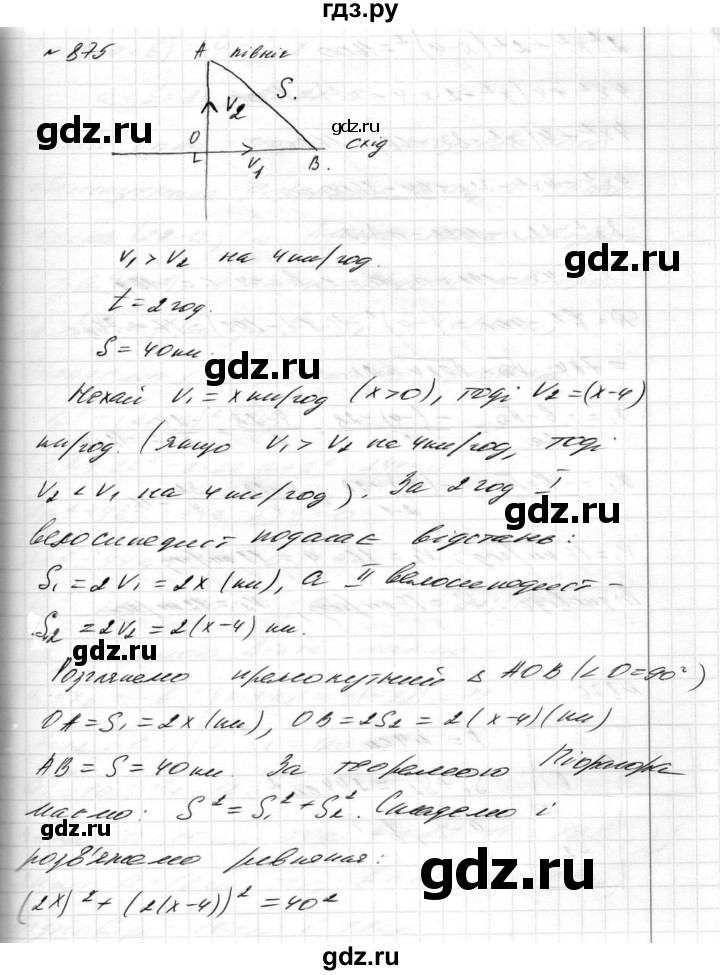 гдз.ру
№ 875
A північ
S.
V₂
gdz.ru
gdz.ru
gdz.ru
O
схід
L
V₁
B.
V₁ > V₂ на 4 км/год.
gdz.ru
t = 2 год.
S = 40 км.
gdz.ru
Нехай V₁ = x км/год (x>0), тоді V₂ = (x-4)
км/год. (якщо V₁ > V₂ на 4 км/год, тоді
gdz.ru
V₂ < V₁ на 4 км/год). За 2 год I
gdz.ru
велосипедист подолає відстань:
S₁ = 2V₁ = 2x (км), а II велосипедист –
S₂ = 2V₂ = 2(x-4) км.
gdz.ru
Розглянемо прямокутний Δ AOB (∠O=90°)
OA = S₁ = 2x (км), OB = 2S₂ = 2(x-4)(км)
AB = S = 40 км. За теоремою Піфагора
gdz.ru
маємо: S² = S₁² + S₂². Складемо і
gdz.ru
розв'яжемо рівняння:
(2x)² + (2(x-4))² = 40²
gdz.ru
gdz.ru
гдз.ру